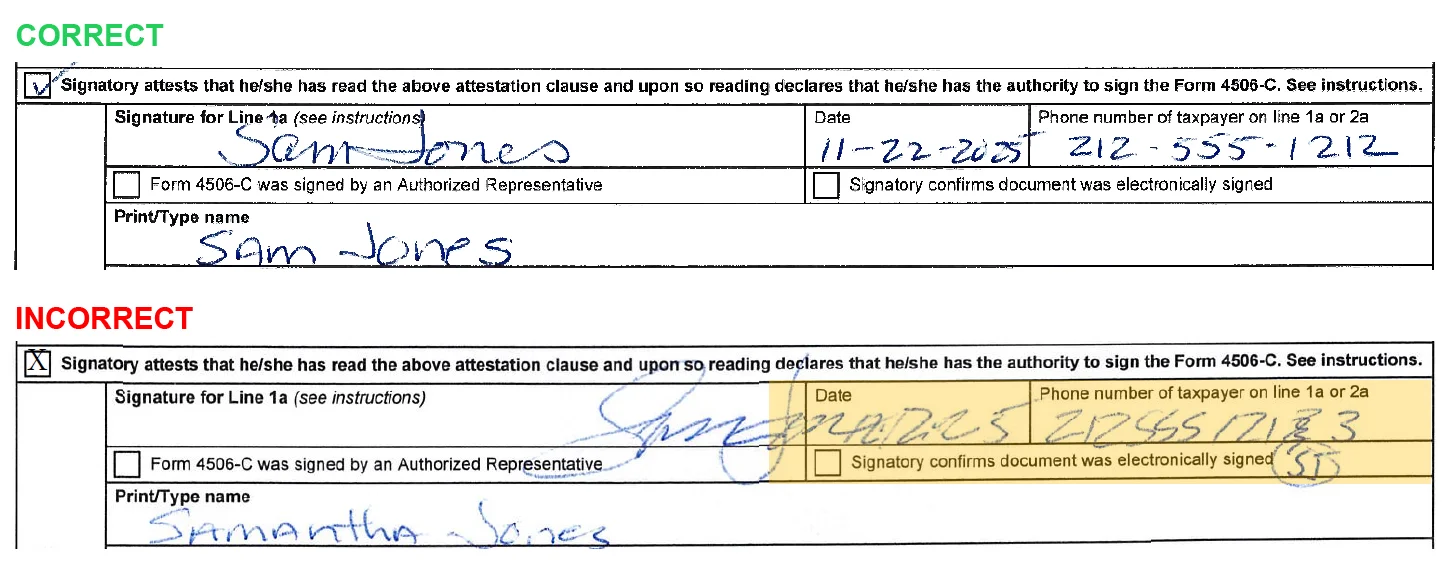 CORRECT
✓ Signatory attests that he/she has read the above attestation clause and upon so reading declares that he/she has the authority to sign the Form 4506-C. See instructions.
Signature for Line 1a (see instructions) Date Phone number of taxpayer on line 1a or 2a
Sam Jones 11-22-2025 212-555-1212
Form 4506-C was signed by an Authorized Representative Signatory confirms document was electronically signed
Print/Type name
Sam Jones
INCORRECT
X Signatory attests that he/she has read the above attestation clause and upon so reading declares that he/she has the authority to sign the Form 4506-C. See instructions.
Signature for Line 1a (see instructions) Date Phone number of taxpayer on line 1a or 2a
Form 4506-C was signed by an Authorized Representative Signatory confirms document was electronically signed SJ
Print/Type name
Samantha Jones